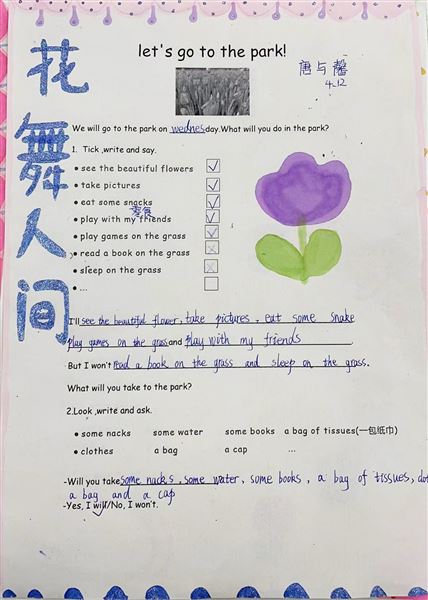 let's go to the park!
花舞人间
唐与馨
4.12
We will go to the park on wednesday.What will you do in the park?
1. Tick ,write and say.
• see the beautiful flowers
• take pictures
• eat some snacks
零食
• play with my friends
• play games on the grass
• read a book on the grass
• sleep on the grass
• ...
I'll see the beautiful flower, take pictures, eat some snake
play games on the grass and play with my friends.
But I won't read a book on the grass and sleep on the grass.
What will you take to the park?
2.Look ,write and ask.
• some nacks some water some books a bag of tissues(一包纸巾)
• clothes a bag a cap ...
-Will you take some nacks, some water, some books, a bag of tissues,
a bag and a cap
-Yes, I will/No, I won't.